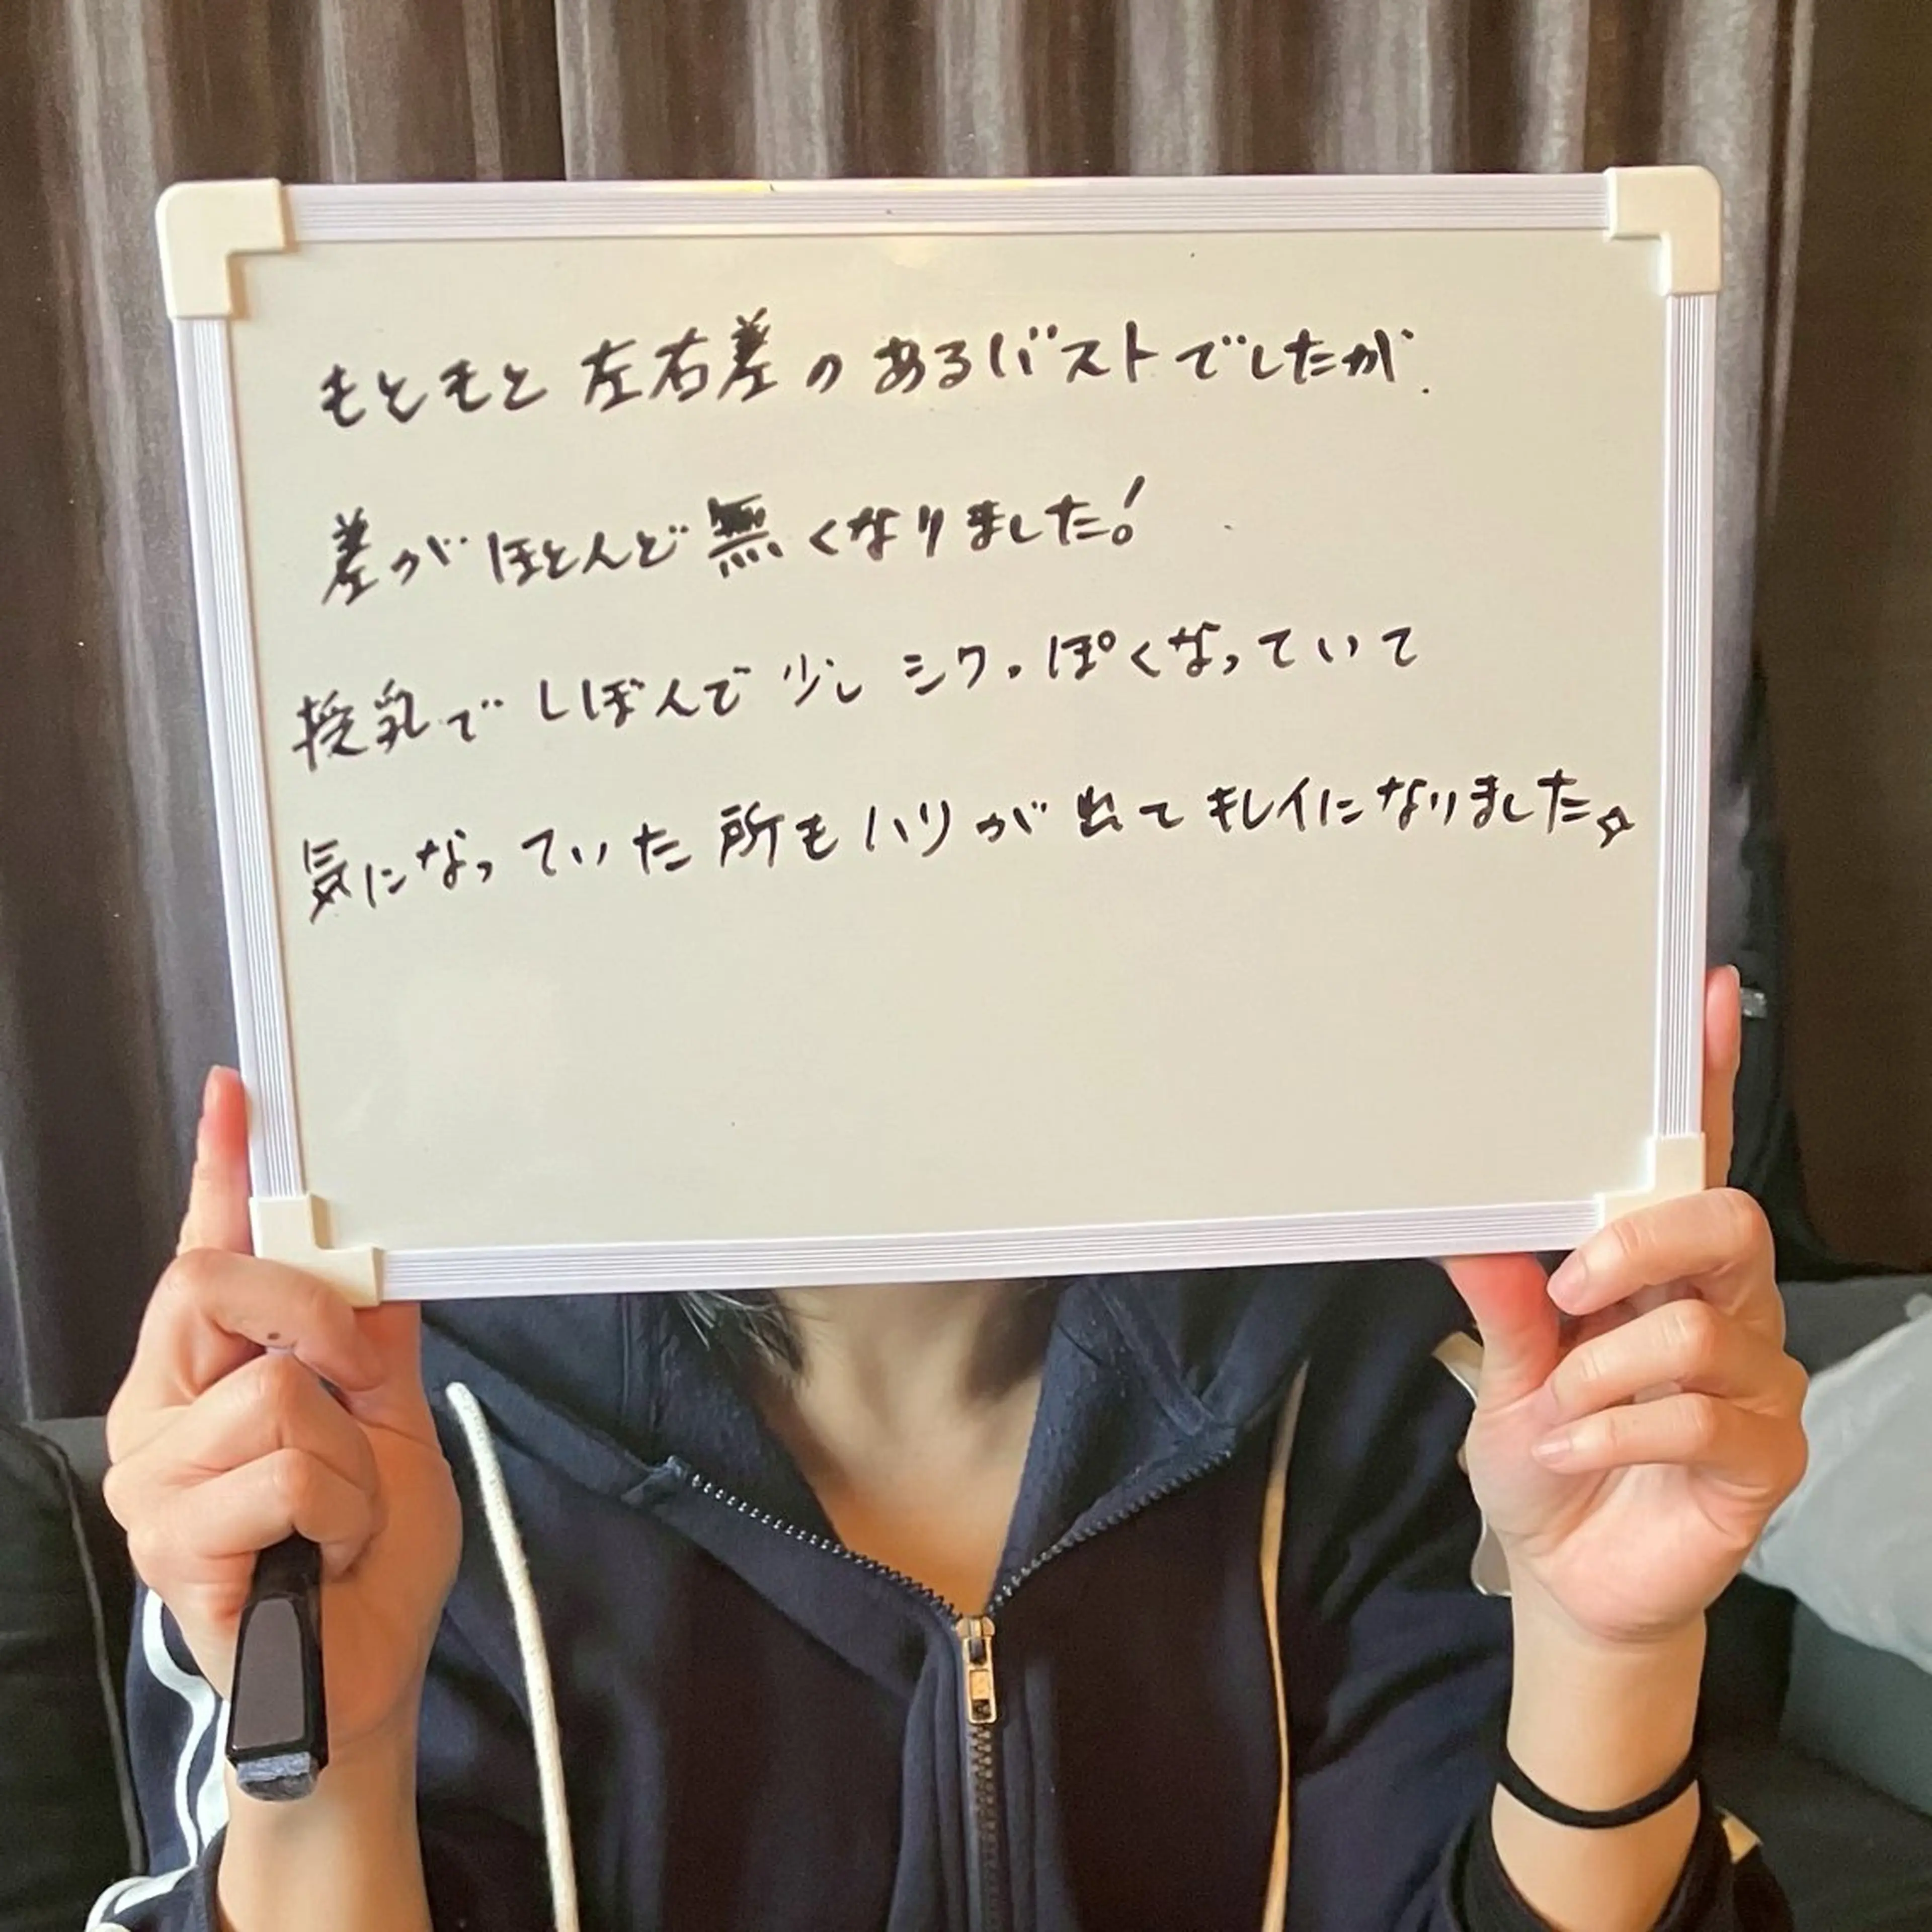 もともと左右差のあるバストでしたが、
差がほとんど無くなりました!
授乳でしぼんで少しシワっぽくなっていて
気になっていた所もハリが出てキレイになりました✧